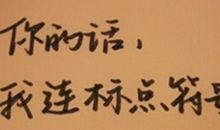 你的话，
我连标点符号